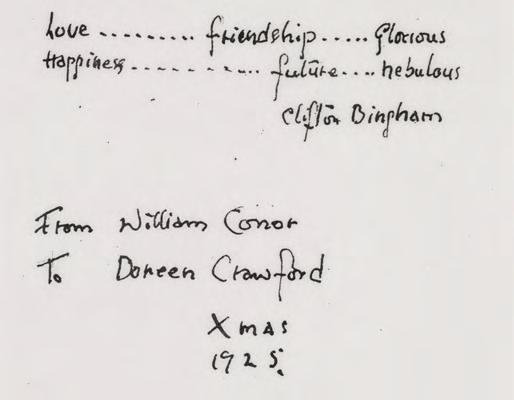 Love ......... friendship ..... Glorious
Happiness .......... future .... nebulous
Clifton Bingham
From William Conor
To Doreen Crawford
Xmas
1925.